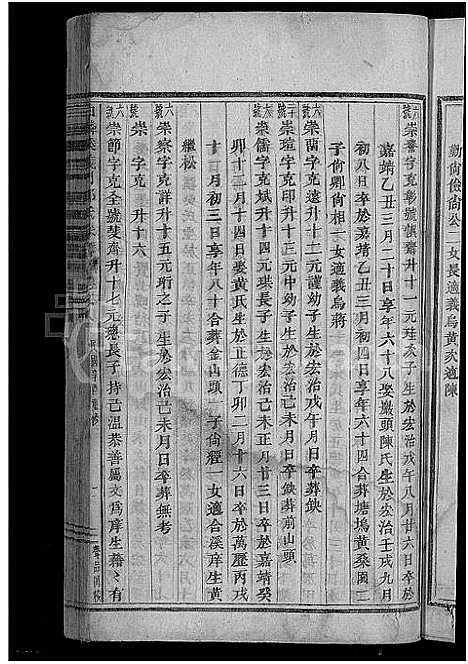 勤尙儉尙公一女長適義烏黃次適陳
崇養字克彰號蘋齋升十一元珪次子生於宏治戊午八月廿六日卒於
嘉靖乙丑三月二十日享年六十八娶巖頭陳氏生於宏治壬戌九月
初八日卒於嘉靖乙丑三月初四日享年六十四合葬塘塢黃桑園二
子尙卿尙相一女適義烏蔣
崇蘭字克遠升十二元謹幼子生於宏治戊午月日卒葬缺
崇瑄字克 升十三元中幼子生於宏治 月日卒缺葬前山頭
崇儒字克斌升十四元琪長子生於宏治己未正月廿三日卒於嘉靖癸
卯十二月十四日娶黃氏生於正德丁卯二月十六日卒於萬歷丙戌
十二月初三日享年八十合葬金山頭一子尙經一女適合溪庠生黃
繼松
崇察字克詳升十五元珩之子生於宏治己未月日卒葬無考
崇 字克 升十六
崇節字克全號斐齋升十七元璁長子持己溫恭善屬文爲庠生藉〻有